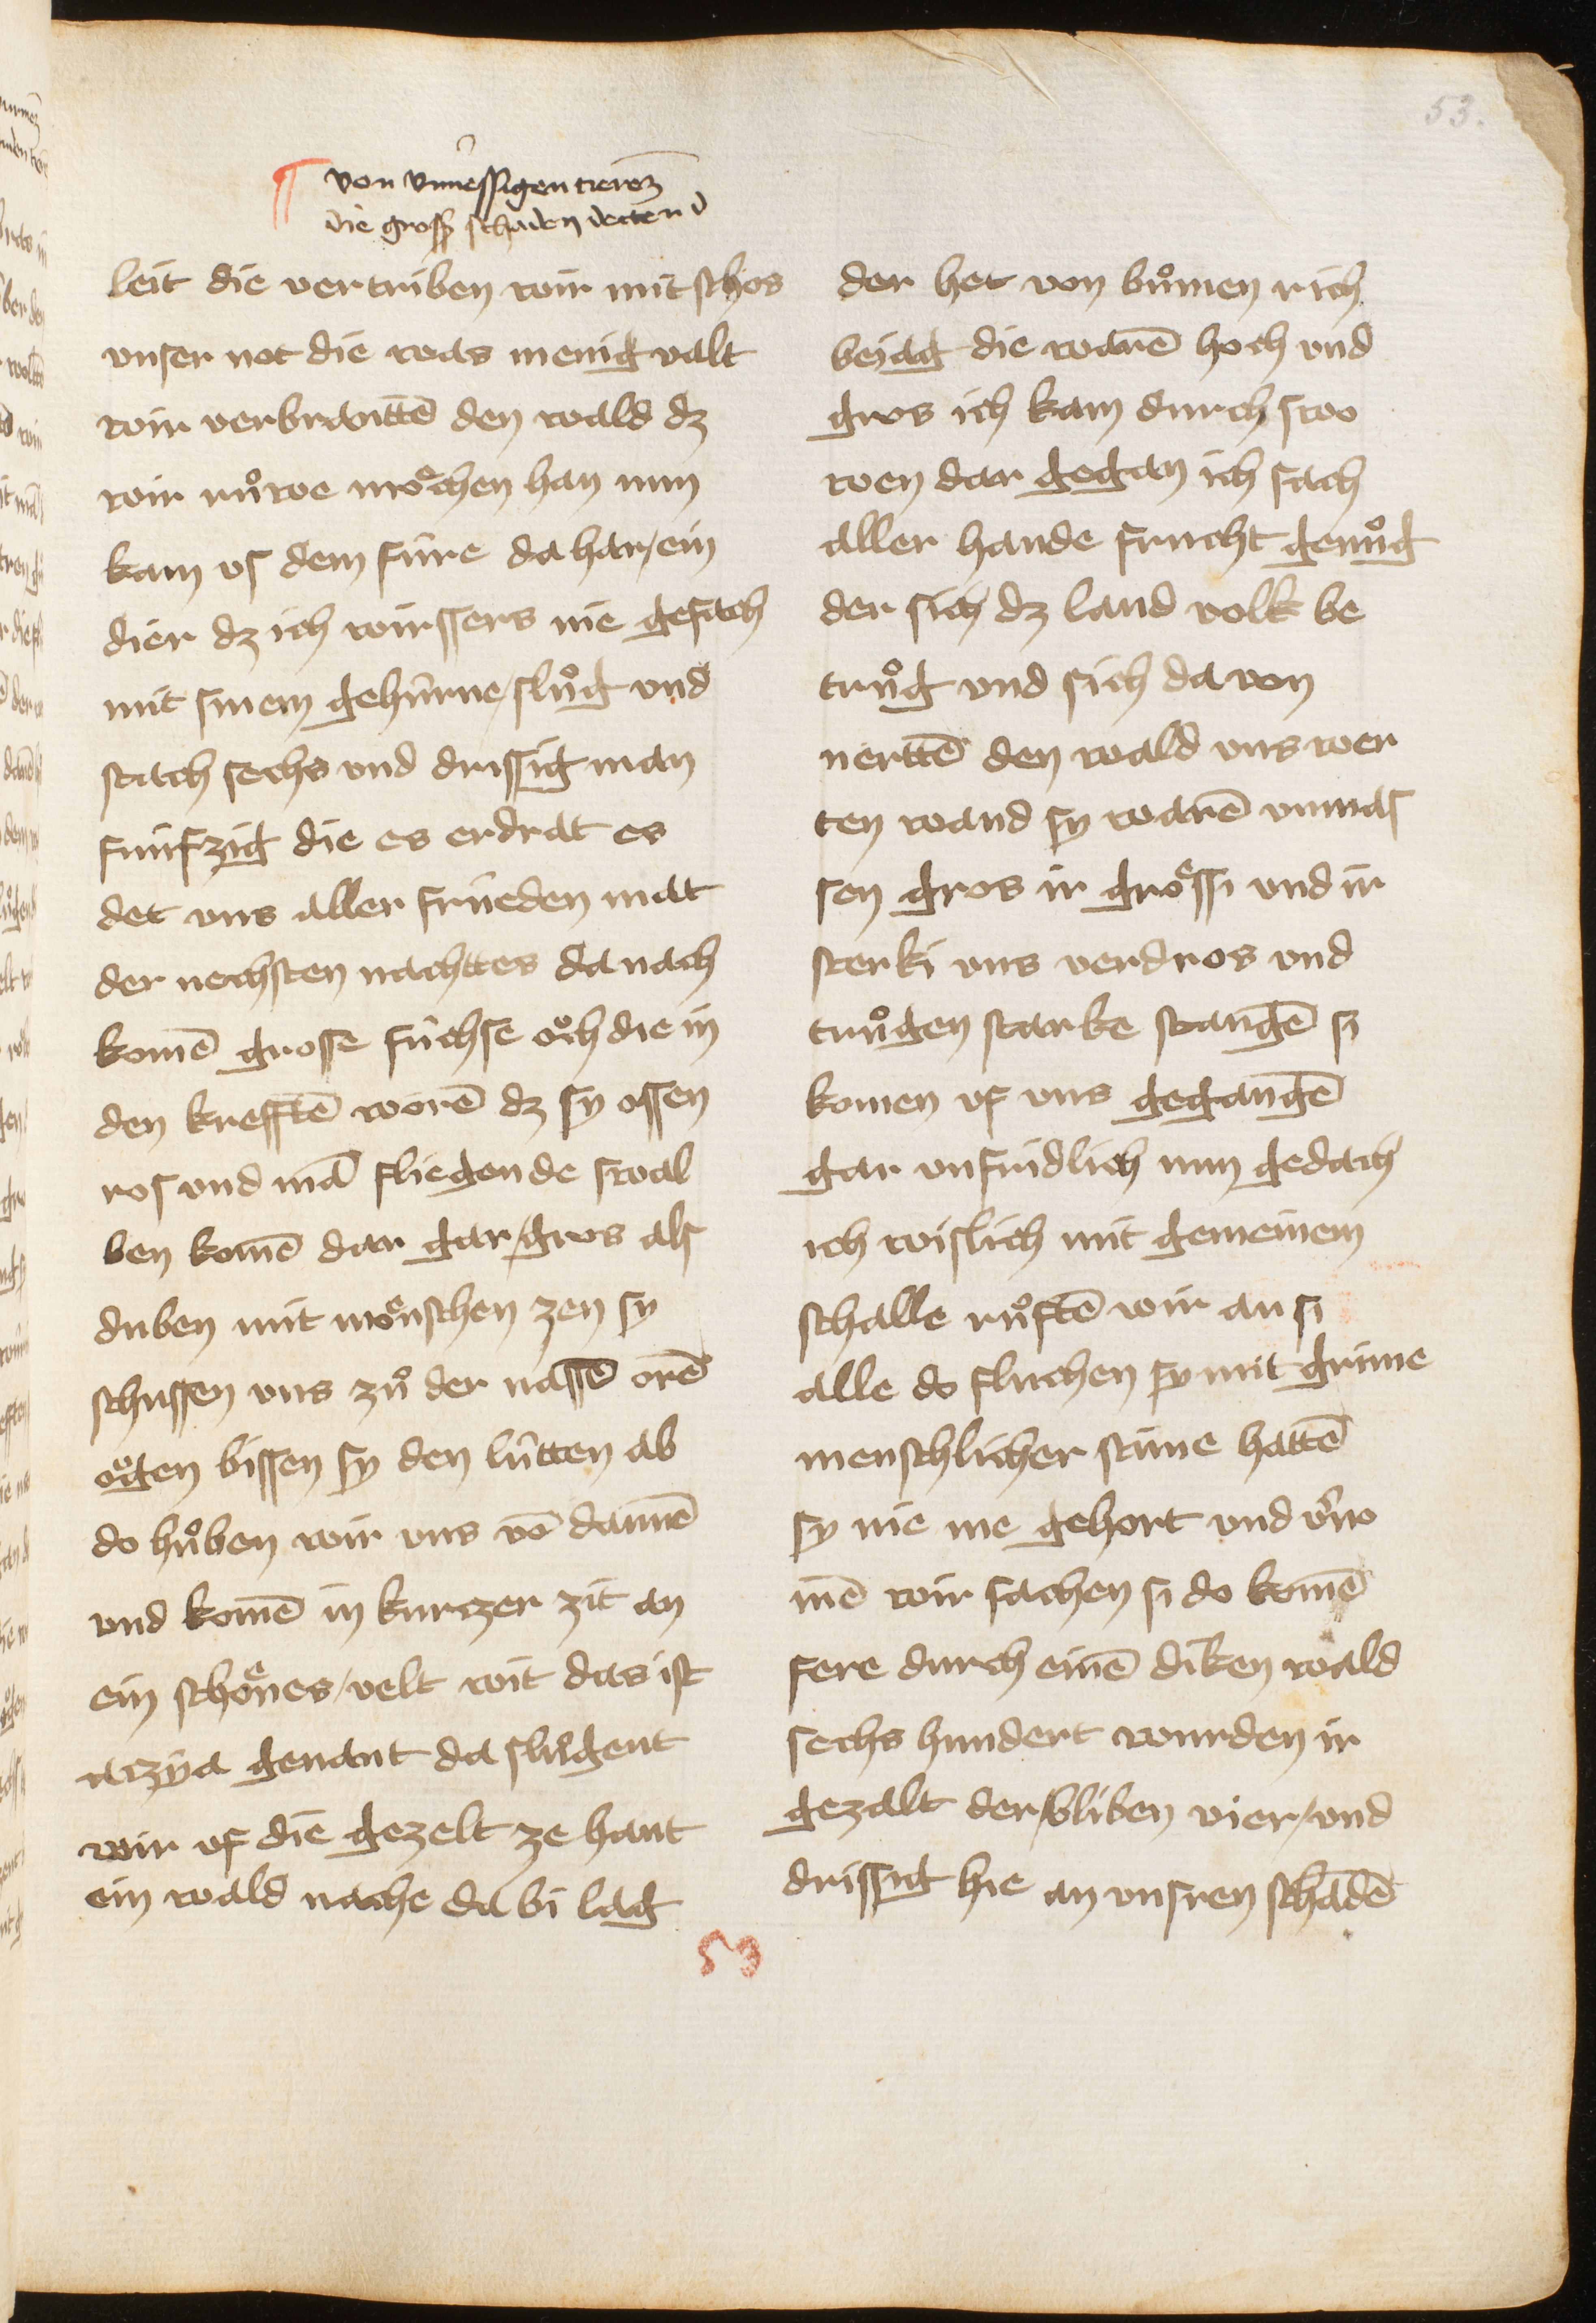 53.
von vnmessigen tieren
die gross schaden detten
leit die vertriben wir mit schos
vnser not die was menig valt
wir verbranttē den wald dz
wir ruͦwe moͤchen han nun
kam vs dem fúre da har / ein
dier dz ich wirssers nie gesach
mit sinem gehúrne / sluͦg vnd
stach sechs vnd drissig man
funfzig die es erdrat es
det vns aller frúeden mat
der nechsten nachttes da nach
komē grosse fúchse oͮch die in
den krefftē worē dz sy ossen
ros vnd mā fliegende swal
ben komē dar gar / gros als
duben mit moͤnschen zen sy
schussen vns zuͦ der nassē orē
oͮgen bissen sy den lútten ab
do huͦben wir vns vō dannē
vnd komē in kurczer zit an
ein schoͤnes / velt wit das ist
aczÿa genant da slugent
wir vf die gezelt ze hant
ein wald nache da bi lag
der het von buͦmen rich
beiag die warē hoch vnd
gros ich kam durch swo
wen dar gegan ich sach
aller hande frucht genuͦg
der sich dz land volk be
truͦg vnd sich da von
nerttē den wald vns wer
ten wand sy warē vnmas
sen gros ir groͤssi vnd ir
sterki vns verdros vnd
truͦgen starke stangē si
komen vf vns gegangē
gar vnfridlich nun gedach
ich wislich mit gemeinem
schalle ruͦftē wir an si
alle do fluchen sy mit grime
menschlicher stime hattē
sy nie me gehort vnd v'no
mē wir sachen si do komē
fere durch einē diken wald
sechs hundert wurden ir
gezalt der / bliben vier / vnd
drissig hie an vnsren schadē
53